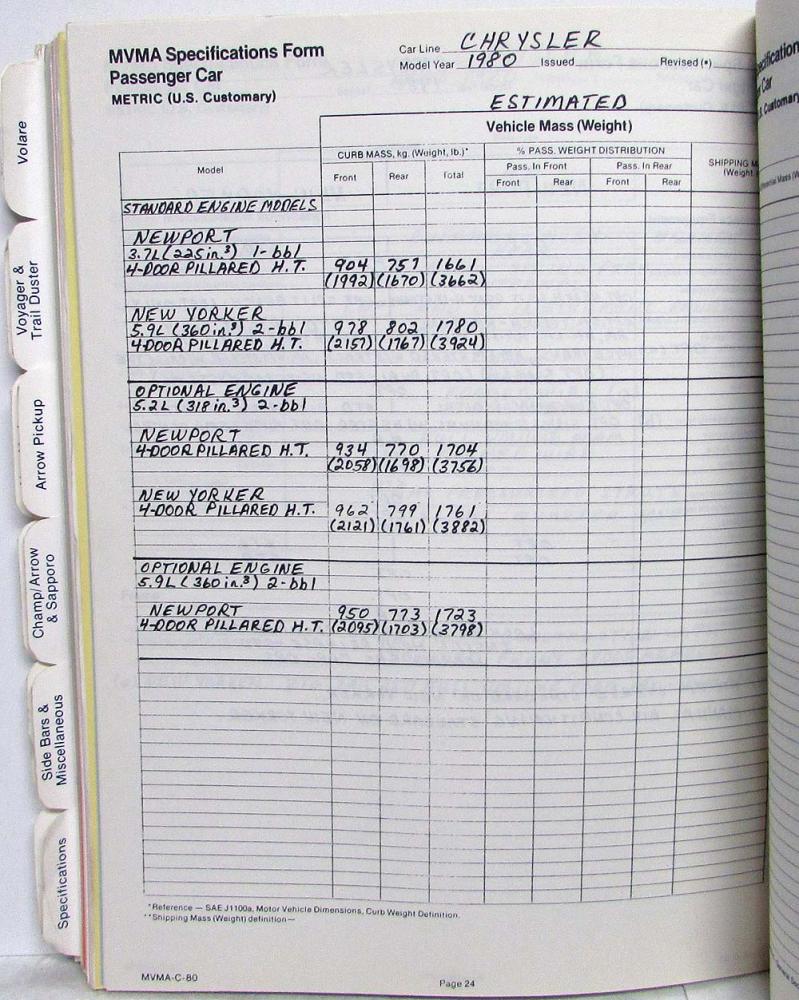 MVMA Specifications Form
Passenger Car
METRIC (U.S. Customary)
Car Line CHRYSLER
Model Year 1980 Issued Revised (•)
ESTIMATED
Vehicle Mass (Weight)
CURB MASS, kg. (Weight, lb.)* % PASS. WEIGHT DISTRIBUTION
Model Front Rear Total Pass. In Front Pass. In Rear SHIPPING
Front Rear Front Rear (Weight,
STANDARD ENGINE MODELS
NEWPORT
3.7L (225 in.³) 1-bbl
4-DOOR PILLARED H.T. 904 757 1661
(1992) (1670) (3662)
NEW YORKER
5.9L (360 in.³) 2-bbl 978 802 1780
4-DOOR PILLARED H.T. (2157) (1767) (3924)
OPTIONAL ENGINE
5.2L (318 in.³) 2-bbl
NEWPORT
4-DOOR PILLARED H.T. 934 770 1704
(2058) (1698) (3756)
NEW YORKER
4-DOOR PILLARED H.T. 962 799 1761
(2121) (1761) (3882)
OPTIONAL ENGINE
5.9L (360 in.³) 2-bbl
NEWPORT 950 773 1723
4-DOOR PILLARED H.T. (2095) (1703) (3798)
*Reference — SAE J1100a, Motor Vehicle Dimensions, Curb Weight Definition.
**Shipping Mass (Weight) definition—
MVMA-C-80
Page 24
Volare
Voyager &
Trail Duster
Arrow Pickup
Champ/Arrow
& Sapporo
Side Bars &
Miscellaneous
Specifications